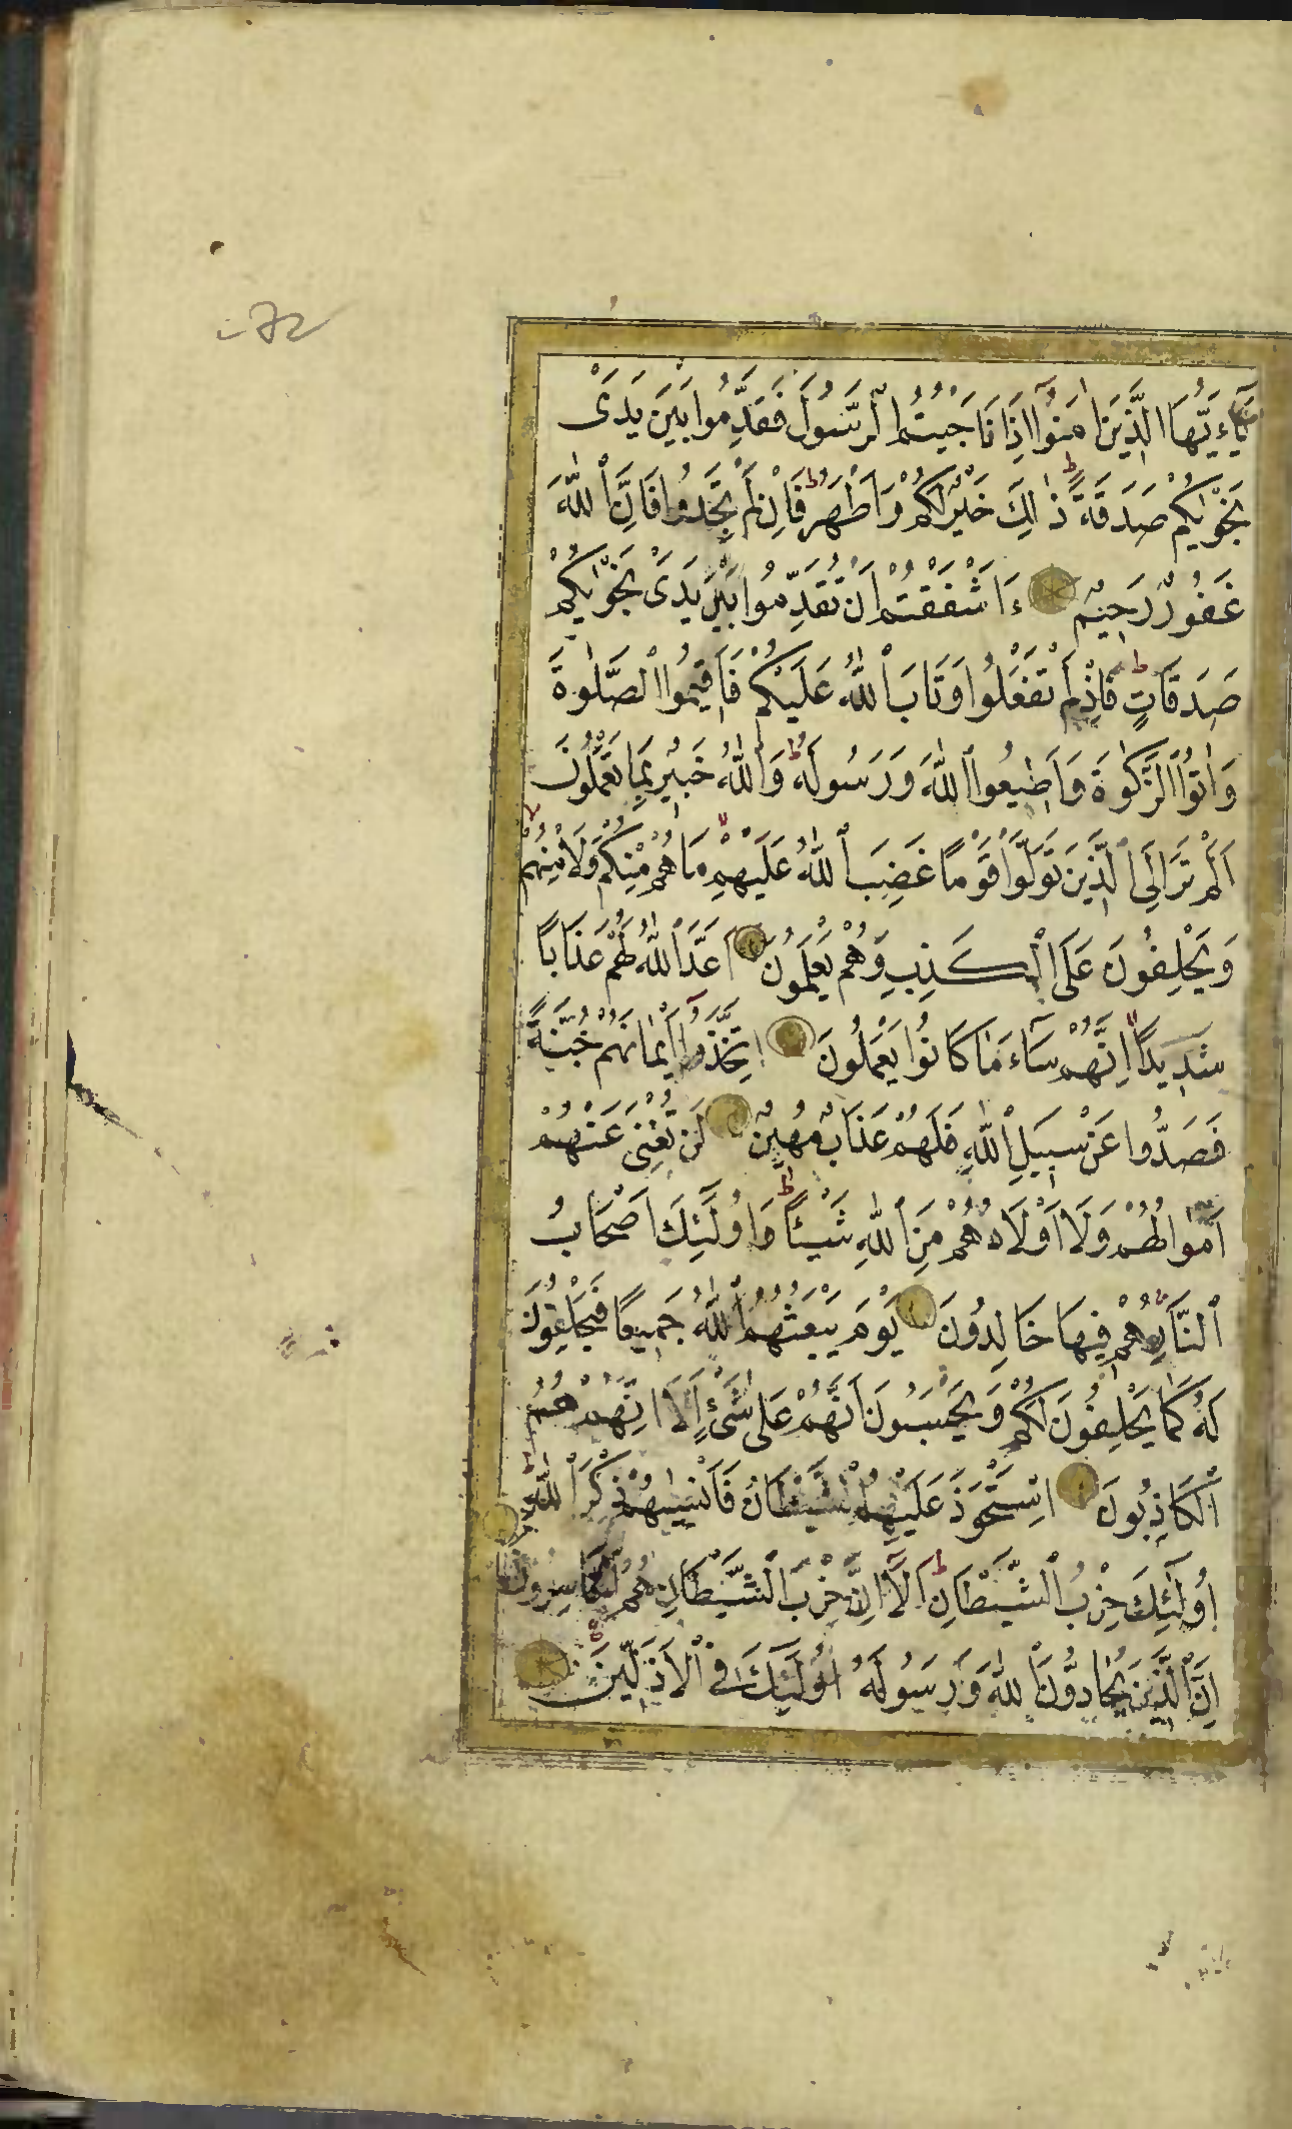 يَآءَيُّهَا الَّذِينَ اٰمَنُوٓا اِذَا نَاجَيْتُمُ الرَّسُولَ فَقَدِّمُوا بَيْنَ يَدَىْ
نَجْوٰيكُمْ صَدَقَةً ذٰلِكَ خَيْرٌ لَكُمْ وَاَطْهَرُ فَاِنْ لَمْ تَجِدُوا فَاِنَّ اللّٰهَ
غَفُورٌ رَحِيمٌ ءَاَشْفَقْتُمْ اَنْ تُقَدِّمُوا بَيْنَ يَدَىْ نَجْوٰيكُمْ
صَدَقَاتٍ فَاِذْ لَمْ تَفْعَلُوا وَتَابَ اللّٰهُ عَلَيْكُمْ فَاَقِيمُوا الصَّلٰوةَ
وَاٰتُوا الزَّكٰوةَ وَاَطِيعُوا اللّٰهَ وَرَسُولَهُ وَاللّٰهُ خَبِيرٌ بِمَا تَعْمَلُونَ
اَلَمْ تَرَ اِلَى الَّذِينَ تَوَلَّوْا قَوْمًا غَضِبَ اللّٰهُ عَلَيْهِمْ مَا هُمْ مِنْكُمْ وَلَا مِنْهُمْ
وَيَحْلِفُونَ عَلَى الْكَذِبِ وَهُمْ يَعْلَمُونَ اَعَدَّ اللّٰهُ لَهُمْ عَذَابًا
شَدِيدًا اِنَّهُمْ سَآءَ مَا كَانُوا يَعْمَلُونَ اِتَّخَذُوٓا اَيْمَانَهُمْ جُنَّةً
فَصَدُّوا عَنْ سَبِيلِ اللّٰهِ فَلَهُمْ عَذَابٌ مُهِينٌ لَنْ تُغْنِىَ عَنْهُمْ
اَمْوَالُهُمْ وَلَا اَوْلَادُهُمْ مِنَ اللّٰهِ شَيْئًا اُولٰٓئِكَ اَصْحَابُ
النَّارِ هُمْ فِيهَا خَالِدُونَ يَوْمَ يَبْعَثُهُمُ اللّٰهُ جَمِيعًا فَيَحْلِفُونَ
لَهُ كَمَا يَحْلِفُونَ لَكُمْ وَيَحْسَبُونَ اَنَّهُمْ عَلٰى شَىْءٍ اَلَا اِنَّهُمْ هُمُ
الْكَاذِبُونَ اِسْتَحْوَذَ عَلَيْهِمُ الشَّيْطَانُ فَاَنْسٰيهُمْ ذِكْرَ اللّٰهِ
اُولٰٓئِكَ حِزْبُ الشَّيْطَانِ اَلَآ اِنَّ حِزْبَ الشَّيْطَانِ هُمُ الْخَاسِرُونَ
اِنَّ الَّذِينَ يُحَادُّونَ اللّٰهَ وَرَسُولَهُ اُولٰٓئِكَ فِى الْاَذَلِّينَ